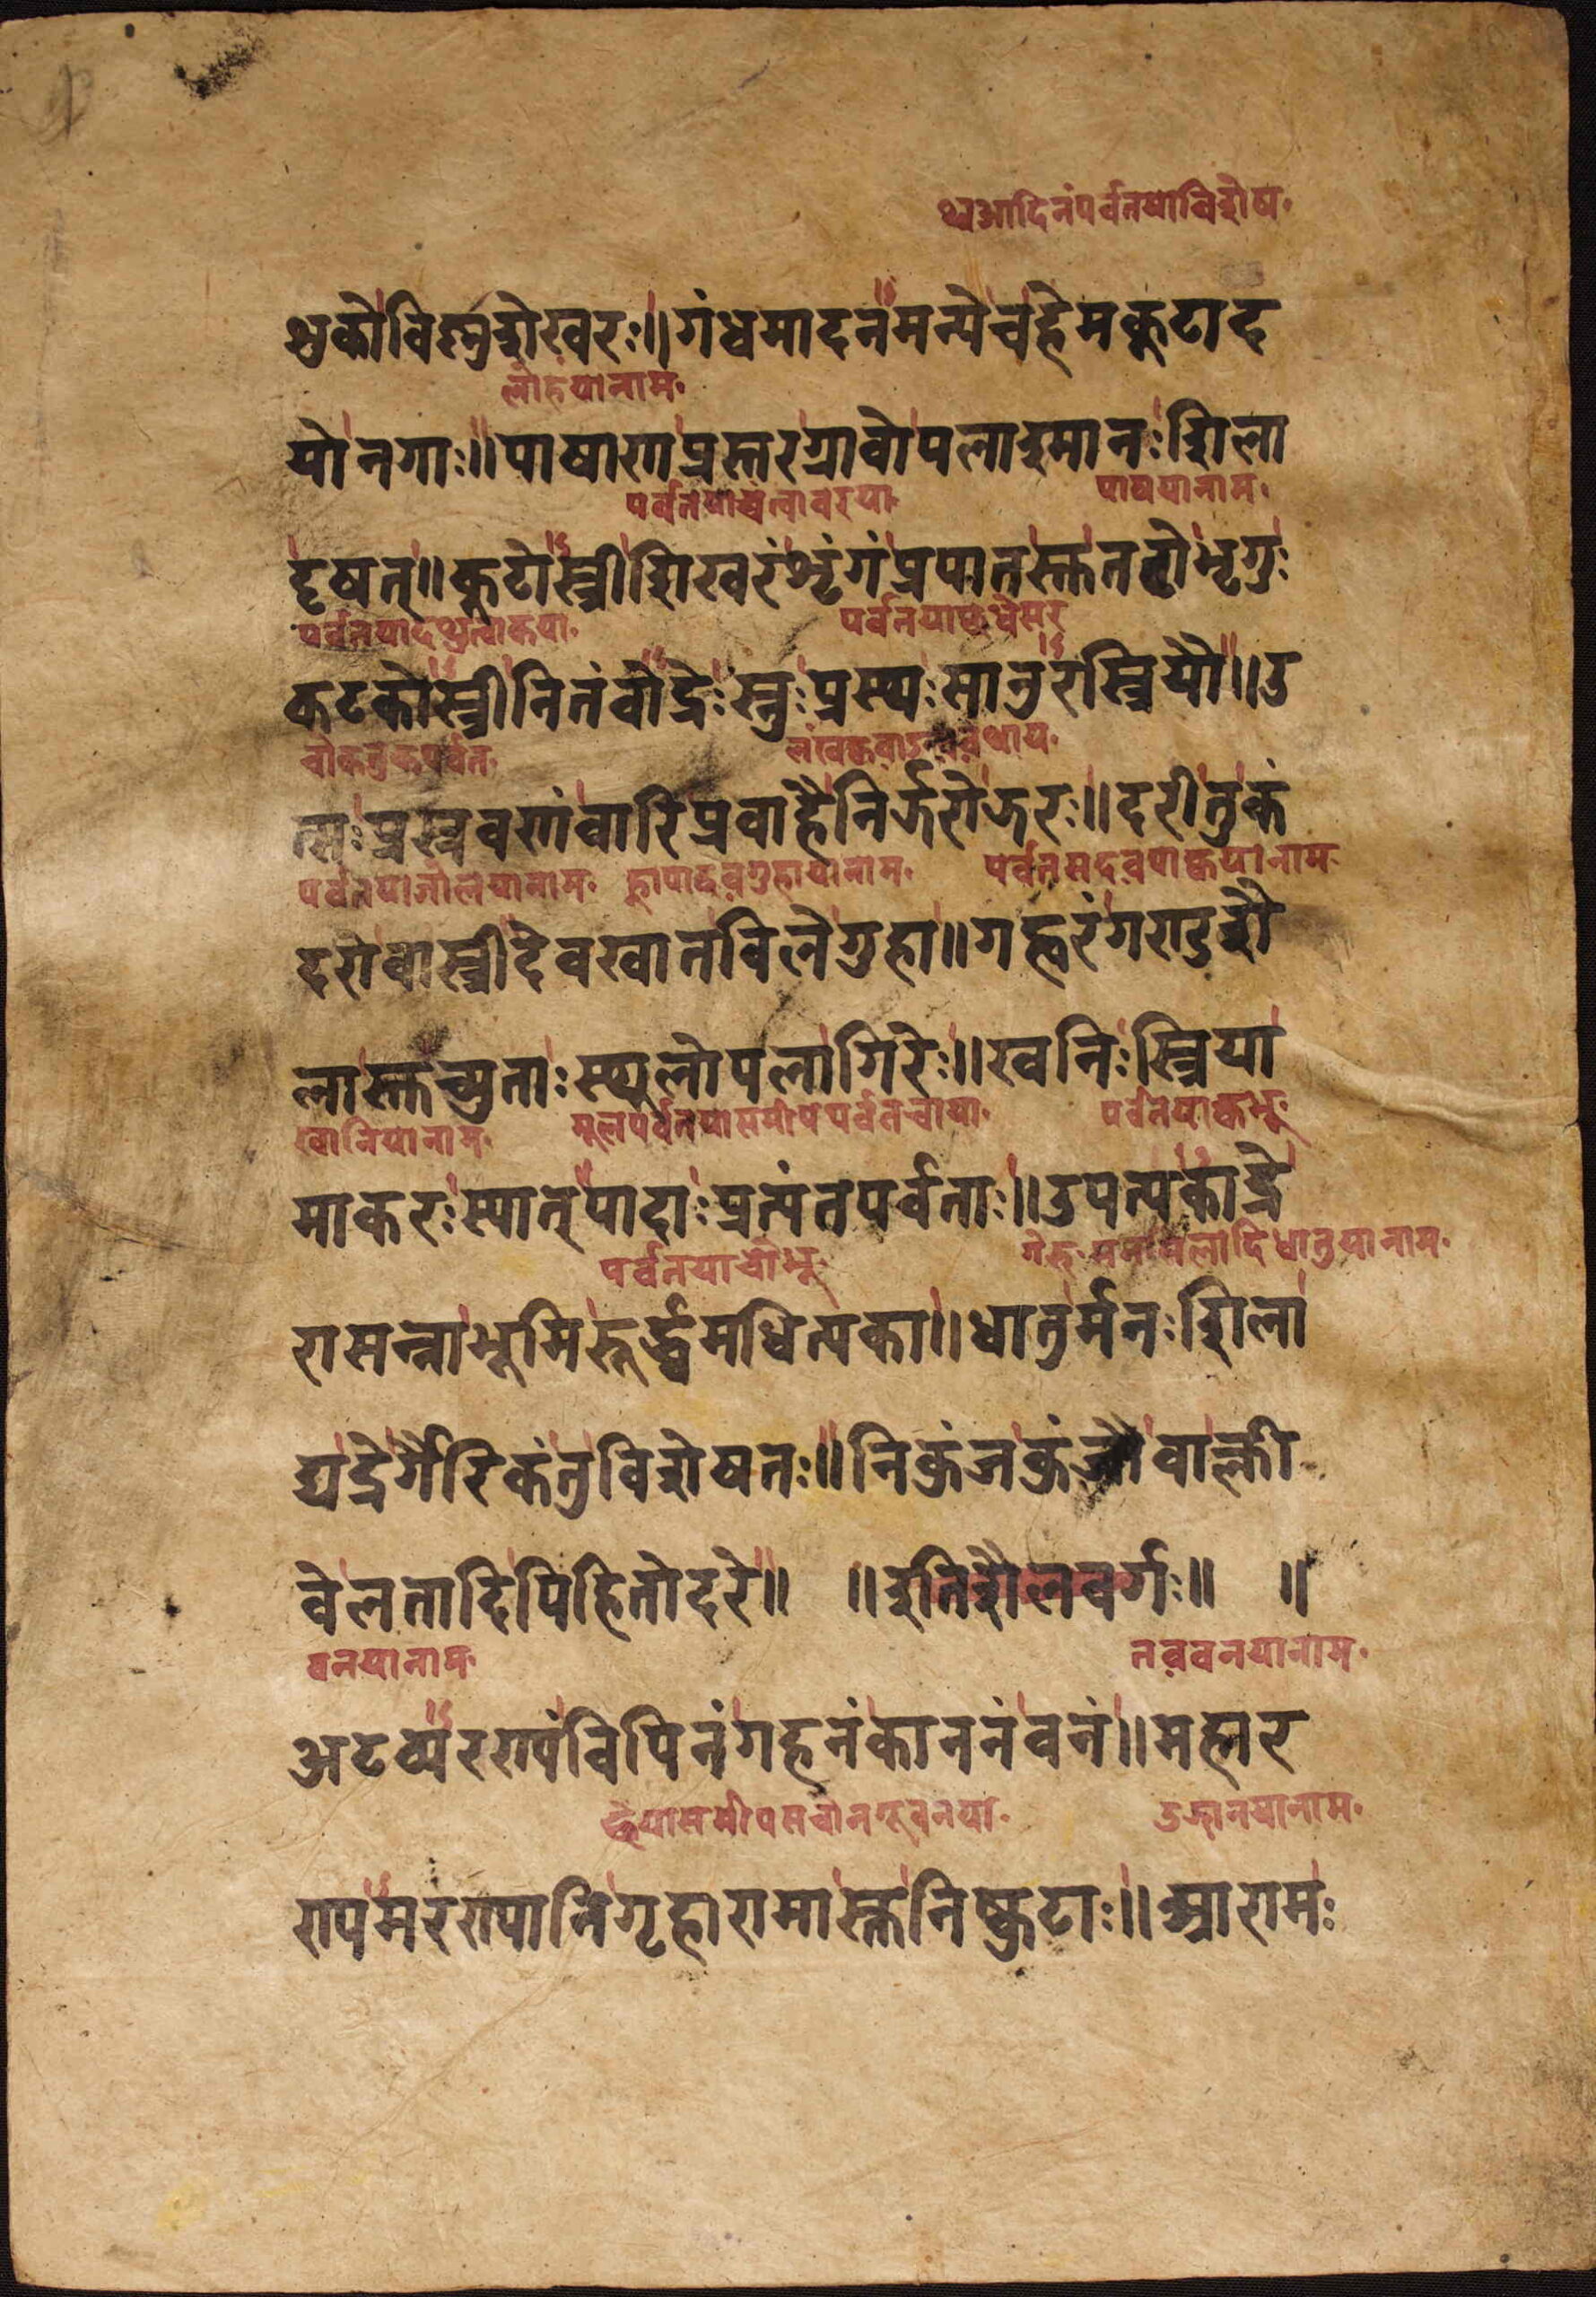 थ्वआदिनंपर्वतयाविशेष॰
शुकोविष्णुशेखरः॥गंधमादनमन्येचहेमकूटाद
लोहंयानाम॰
योनगाः॥पाषाणप्रस्तरग्रावोपलाश्मानःशिला
पर्वतयाच्वत्वावरया॰ पाषयानाम॰
दृषत्॥कूटोस्त्रीशिखरंशृंगंप्रपातस्त्वतटोभृगुः
पर्वतयादथुत्वाकया॰
कटकोस्त्रीनितंवोद्रेःस्नुःप्रस्थःसानुरस्त्रियौ॥उ
चोकतुकपर्वत॰
त्सःप्रस्रवणंवारिप्रवाहैनिर्झरोझरः॥दरीतुकं
पर्वतयाजोलयानाम॰ पर्वतसदवपाक्वयानाम
दरोवास्त्रीदेवखातविलेगुहा॥गह्वरंगण्डशै
लास्तच्युताःस्थूलोपलागिरेः॥खनिःस्त्रिया
खानियानाम॰ मूलपर्वतयासमीपपर्वतचाया॰ पर्वतयाक्वभू॰
माकरःस्यात्पादाःप्रत्यंतपर्वताः॥उपत्यकाद्रे
पर्वतयाचोभू॰
रासन्नाभूमिरूर्द्ध्वमधित्यका॥धातुर्मनःशिला
द्यद्रेर्गैरिकंतुविशेषतः॥निकुंजकुंजौवाक्ली
वेलतादिपिहितोदरे॥ ॥इतिशैलवर्गः॥ ॥
वनयानाम॰ तवनयानाम॰
अटव्यरण्यंविपिनंगहनंकाननंवनं॥महार
छेयासमीपसचोनगूवनया॰ उद्यानयानाम॰
ण्यमरण्यानिगृहारामास्तुनिष्कुटाः॥आरामः